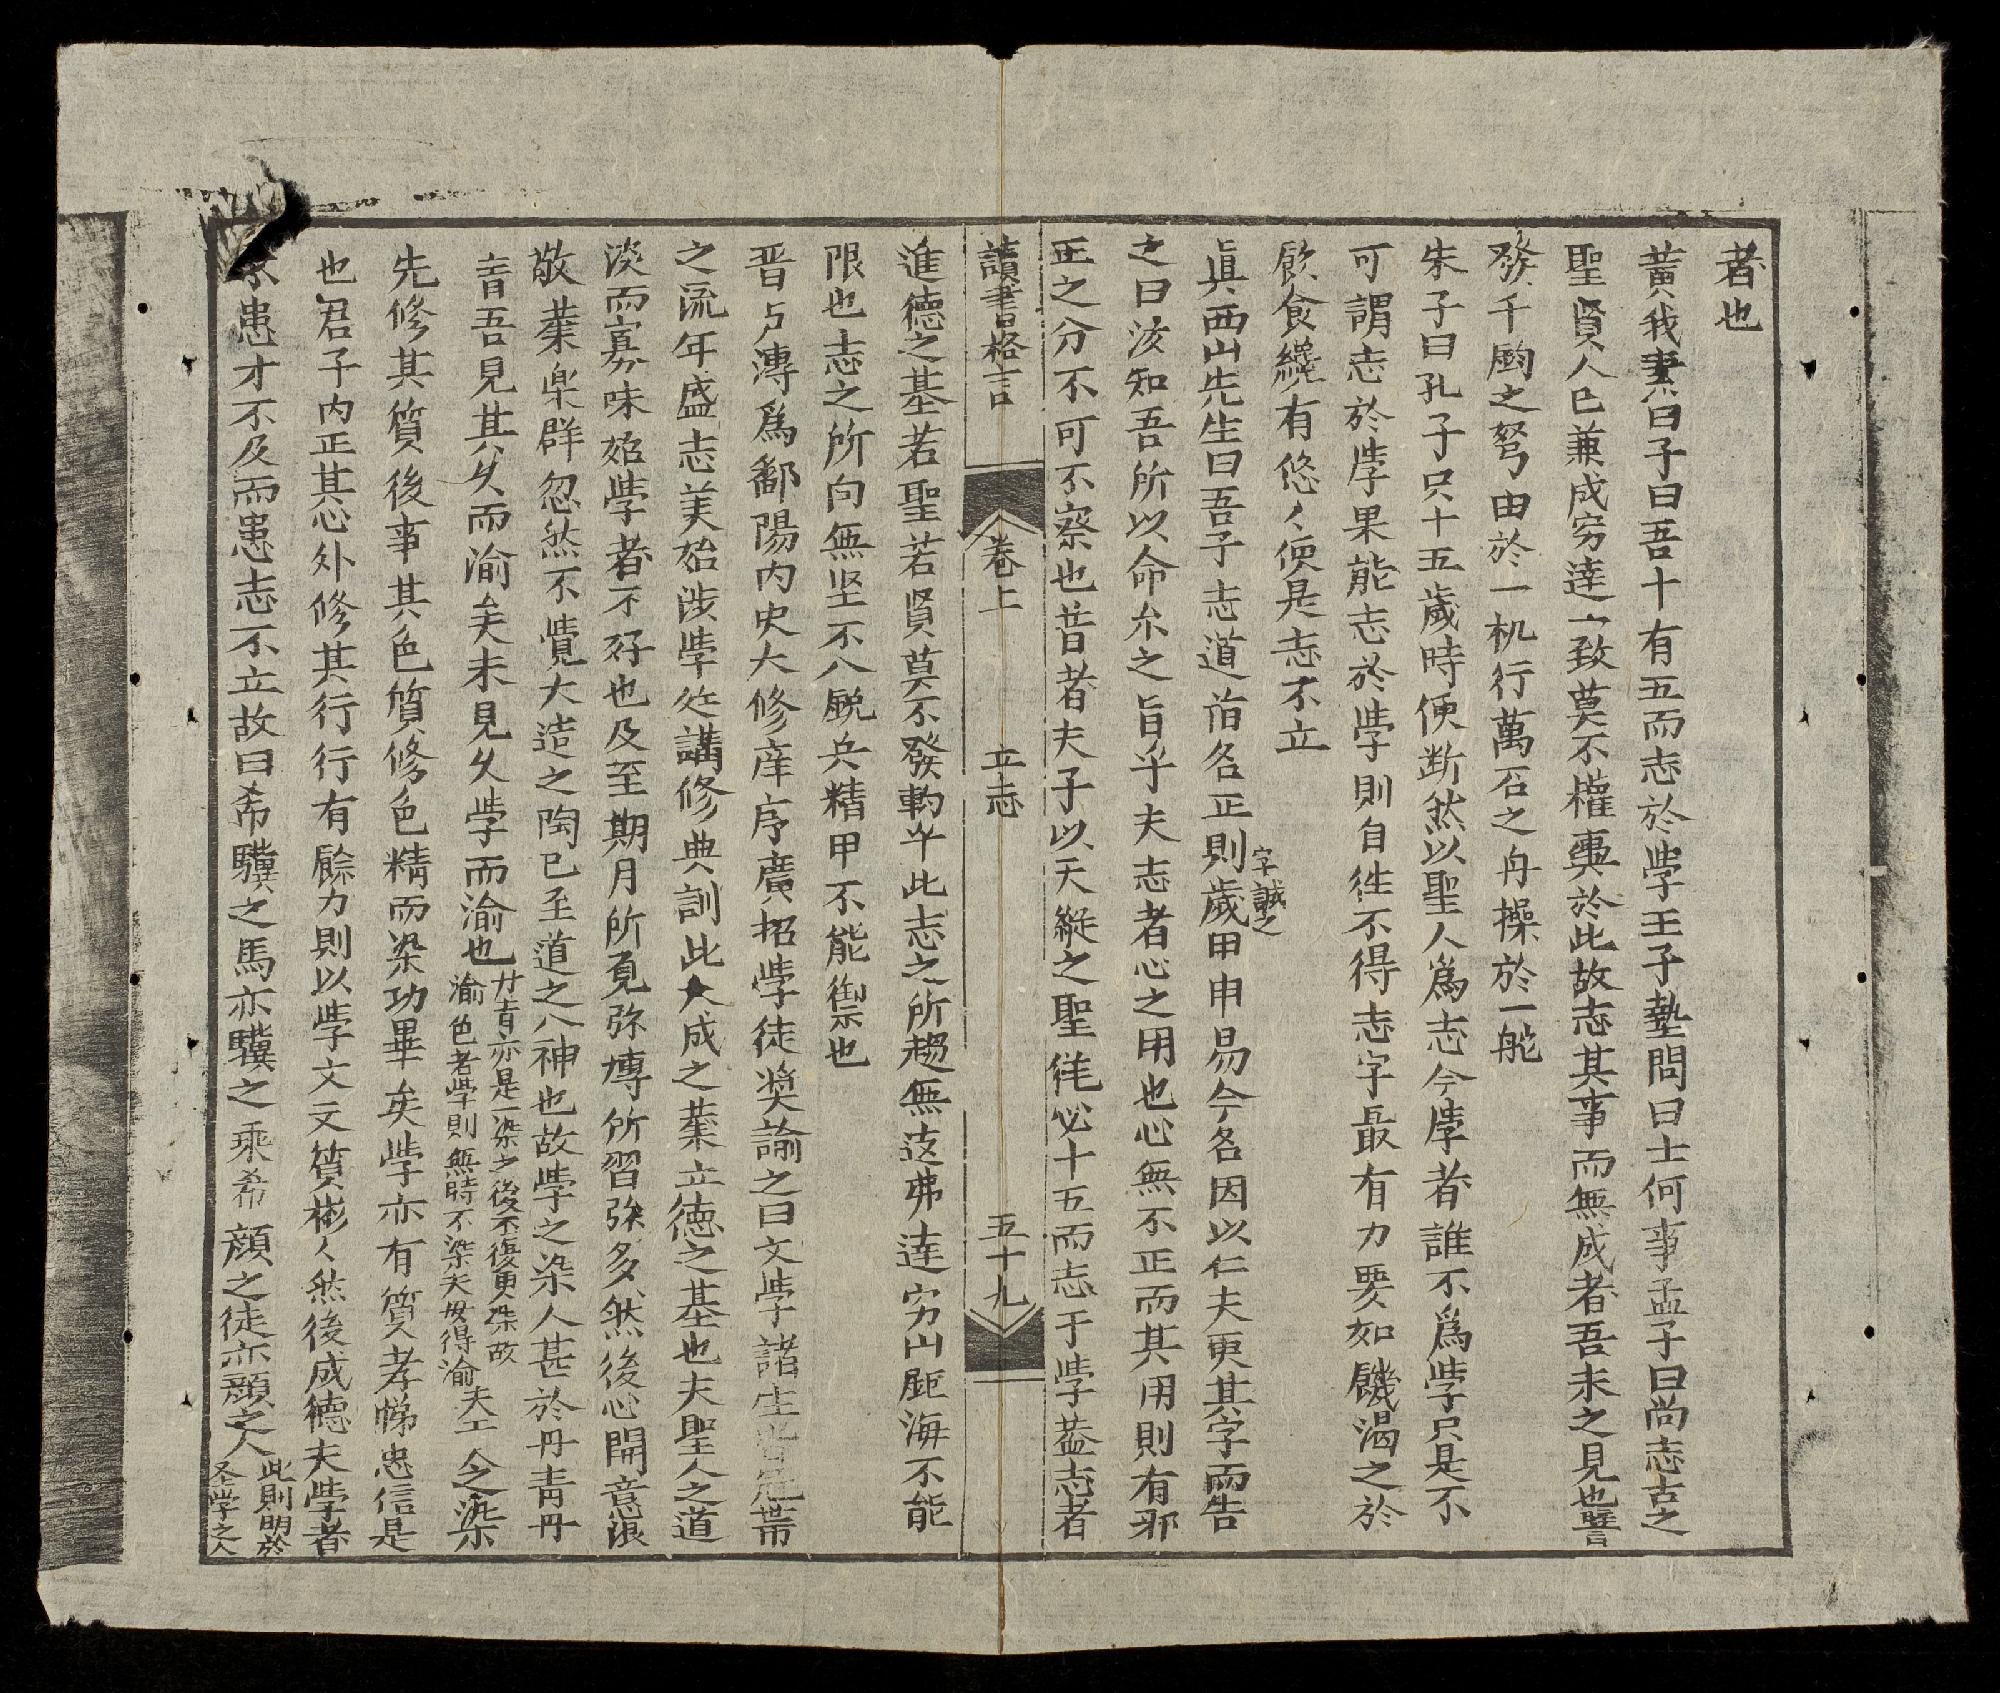 者也
黃我素曰子曰吾十有五而志於學王子墊問曰士何事孟子曰尚志古之
聖賢人已兼成穷達一致莫不權輿於此故志其事而無成者吾未之見也譬
發千鈞之弩由於一机行萬石之舟操於一舵
朱子曰孔子只十五歲時便断然以聖人爲志今學者誰不爲學只是不
可謂志於學果能志於學則自住不得志字最有力要如饑渴之於
飲食纔有悠々便是志不立
眞西山先生曰吾子志道首名正則歲甲申易今名因以仁夫更其字而告
字誠之
之曰汝知吾所以命尔之旨乎夫志者心之用也心無不正而其用則有邪
正之分不可不察也昔者夫子以天縱之聖徒必十五而志于學盖志者
讀書格言 卷上 立志 五十九
進德之基若聖若賢莫不發軔乎此志之所趨無遠弗達穷山距海不能
限也志之所向無坚不入銳兵精甲不能禦也
晋虞溥爲鄱陽內史大修庠序廣招學徒奨諭之曰文學諸生皆冠帶
之流年盛志美始涉學庭講修典訓此大成之業立德之基也夫聖人之道
淡而寡味始學者不好也及至期月所覓弥博所習弥多然後心開意浪
敬業楽群忽然不覺大造之陶已至道之入神也故學之染人甚於丹青丹
青吾見其久而渝矣未見久學而渝也
廿青亦是一染之後不復更染故
渝色者學則無時不染夫毋得渝
夫工人之染
先修其質後事其色質修色精而染功畢矣學亦有質孝悌忠信是
也君子內正其心外修其行行有餘力則以學文文質彬々然後成德夫學者
不患才不及而患志不立故曰希驥之馬亦驥之乘希顔之徒亦顔之人
此則明於
圣學之人